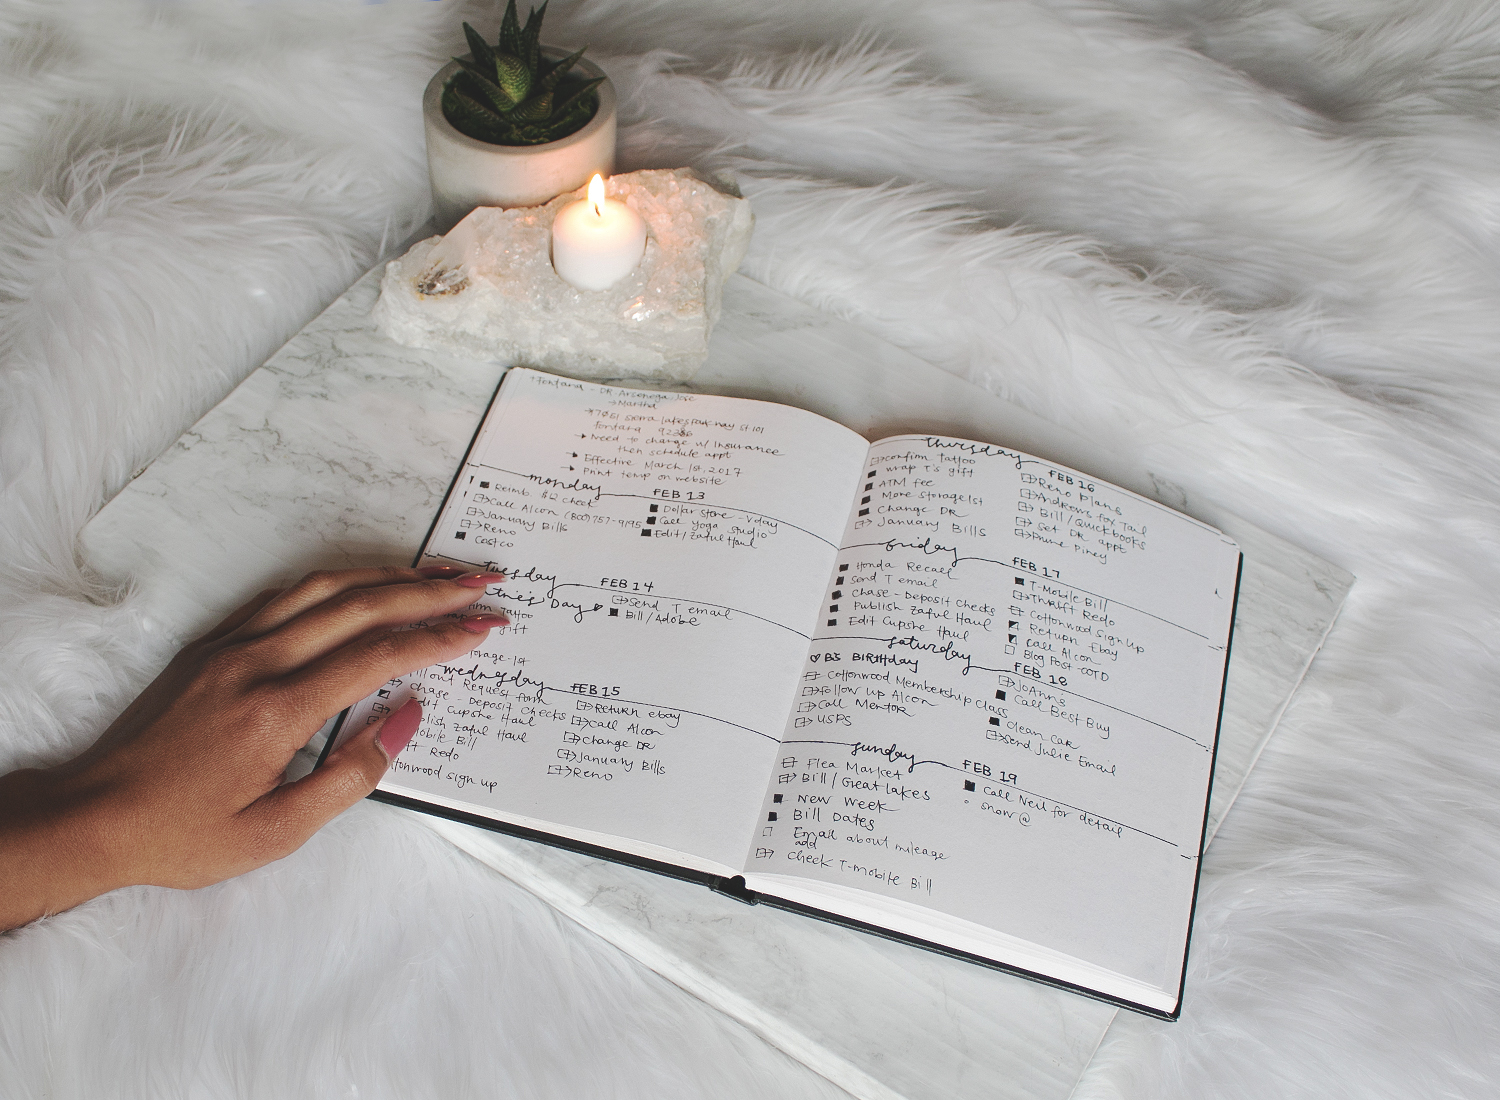 Fontana - DR. Arsenega, Jose
→ Martha
Sierra Lakes Parkway St 101
Fontana
→ Need to change w/ Insurance
then schedule appt
→ Effective March 18, 2017
→ Print temp on website
monday FEB 13
Reimb. $2 check
Call Alcon (800) 757-9195
January Bills
Reno
Costco
Dollar Store - Vday
Call yoga studio
Edit/Zaful Haul
tuesday FEB 14
tine's Day ♥
irm Tattoo
gift
torage-1st
Send T email
Bill/Adobe
wednesday FEB 15
Fill out Request form
Chase - Deposit Checks
Edit Cupshe Haul
blish Zaful Haul
Mobile Bill
ft Redo
ttonwood sign up
Return ebay
Call Alcon
Change DR
January Bills
Reno
thursday FEB 16
confirm Tattoo
wrap T's gift
ATM fee
More Storage 1st
Change DR
January Bills
Reno Plans
Andrews fox Tail
Bill/Quickbooks
Get DR appt
Prune Piney
friday FEB 17
Honda Recall
Send T email
Chase - Deposit Checks
Publish Zaful Haul
Edit Cupshe Haul
T-Mobile Bill
Thrift Redo
Cottonwood Sign Up
Return Ebay
Call Alcon
Blog Post - OOTD
saturday FEB 18
♡ B's BIRthday
Cottonwood Membership Class
Follow up Alcon
Call Mentor
USPS
JoAnn's
Call Best Buy
Clean Car
Send Julie Email
sunday FEB 19
Flea Market
Bill/Great Lakes
New Week
Bill Dates
Email about mileage
add
check T-mobile Bill
Call Neil for detail
snow @